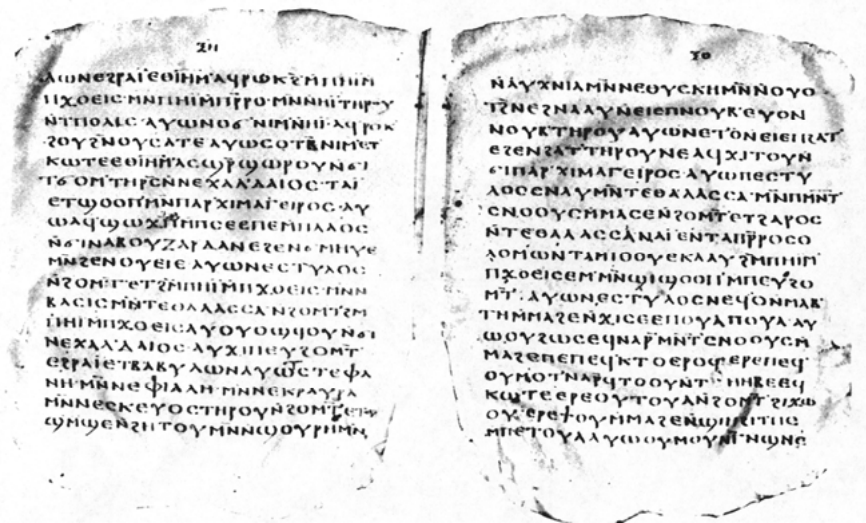 ⲝⲏ
ⲗⲱⲛⲉϩⲣⲁⲓⲉⲑⲓⲏⲙ̅ⲁϥⲣⲱⲕϩⲙ̅ⲡⲏⲓⲙ̅
ⲡϫⲟⲉⲓⲥ·ⲙⲛ̅ⲡⲏⲓⲙ̅ⲡⲣ̅ⲣⲟ·ⲙⲛ̅ⲛⲏⲓⲧⲏⲣⲟⲩ
ⲛ̅ⲧⲡⲟⲗⲓⲥ·ⲁⲩⲱⲛⲟϭⲛⲓⲙⲛ̅ⲏⲓ·ⲁϥⲣⲟⲕ
ϩⲟⲩϩⲛ̅ⲟⲩⲥⲁⲧⲉ·ⲁⲩⲱⲥⲟⲧⲃ̅ⲛⲓⲙⲉⲧ
ⲕⲱⲧⲉⲉⲑⲓⲏⲙ̅ⲁⲥϣⲣ̅ϣⲱⲣⲟⲩⲛ̅ϭⲓ
ⲧϭⲟⲙⲧⲏⲣⲥ̅ⲛ̅ⲛⲉⲭⲁⲗⲇⲁⲓⲟⲥ·ⲧⲁⲓ
ⲉⲧϣⲟⲟⲡⲙⲛ̅ⲡⲁⲣⲭⲓⲙⲁⲅⲉⲓⲣⲟⲥ·ⲁⲩ
ⲱⲁϥϣⲱϫⲡ̅ⲙ̅ⲡⲥⲉⲉⲡⲉⲙ̅ⲡⲗⲁⲟⲥ
ⲛ̅ϭⲓⲛⲁⲃⲟⲩⲍⲁⲣⲇⲁⲛⲉϩⲉⲛϭⲙⲏⲩⲉ
ⲙⲛ̅ϩⲉⲛⲟⲩⲉⲓⲉ·ⲁⲩⲱⲛⲉⲥⲧⲩⲗⲟⲥ
ⲛ̅ϩⲟⲙⲧ̅ⲉⲧϩⲙ̅ⲡⲏⲓⲙ̅ⲡϫⲟⲉⲓⲥ·ⲙⲛ̅ⲛ
ⲃⲁⲥⲓⲥ·ⲙⲛ̅ⲧⲉⲑⲁⲗⲁⲥⲥⲁⲛ̅ϩⲟⲙⲧ̅ϩⲙ̅
ⲡⲏⲓⲙ̅ⲡϫⲟⲉⲓⲥ·ⲁⲩⲟⲩⲟϣϥⲟⲩⲛ̅ϭⲓ
ⲛⲉⲭⲁⲗⲇⲁⲓⲟⲥ·ⲁⲩϫⲓⲡⲉⲩϩⲟⲙⲧ̅
ⲉϩⲣⲁⲓⲉⲧⲃⲁⲃⲩⲗⲱⲛⲁⲩⲱⲧⲉⲥⲧⲉⲫⲁ
ⲛⲏ·ⲙⲛ̅ⲛⲉⲫⲓⲁⲗⲏ·ⲙⲛ̅ⲛⲉⲕⲣⲁⲩⲣⲁ
ⲙⲛ̅ⲛⲉⲥⲕⲉⲩⲟⲥⲧⲏⲣⲟⲩⲛ̅ϩⲟⲙⲧ̅ⲉⲧⲟⲩ
ϣⲙ̅ϣⲉⲛ̅ϩⲏⲧⲟⲩⲙⲛ̅ⲛ̅ϣⲟⲩⲣⲏⲙⲛ̅
ⲝⲑ
ⲛ̅ⲗⲩⲭⲛⲓⲁⲙⲛ̅ⲛⲉⲑⲩⲥⲕⲏⲙⲛ̅ⲛ̅ⲟⲩⲟ
ⲧϩ̅ⲛⲉϩⲛⲁⲁⲩⲛ̅ⲉⲓⲉⲡⲛⲟⲩⲃⲉⲩⲟⲛ
ⲛⲟⲩⲃⲧⲏⲣⲟⲩⲁⲩⲱⲛⲉⲧⲟⲛ̅ⲉⲓⲉⲡϩⲁⲧ
ⲉϩⲉⲛϩⲁⲧⲧⲏⲣⲟⲩⲛⲉⲁϥϫⲓⲧⲟⲩⲛ̅
ϭⲓⲡⲁⲣⲭⲓⲙⲁⲅⲉⲓⲣⲟⲥ·ⲁⲩⲱⲡⲉⲥⲧⲩ
ⲗⲟⲥⲥⲛⲁⲩⲙⲛ̅ⲧⲉⲑⲁⲗⲁⲥⲥⲁ·ⲙⲛ̅ⲡⲙⲛ̅ⲧ
ⲥⲛⲟⲟⲩⲥⲙ̅ⲙⲁⲥⲉⲛ̅ϩⲟⲙⲧ̅ⲉⲧϩⲁⲣⲟⲥ
ⲛ̅ⲧⲉⲑⲁⲗⲁⲥⲥⲁ·ⲛⲁⲓⲉⲛⲧⲁⲡⲣ̅ⲣⲟⲥⲟ
ⲗⲟⲙⲱⲛⲧⲁⲙⲓⲟⲟⲩⲉⲕⲗⲁⲁⲩϩⲙ̅ⲡⲏⲓⲙ̅
ⲡϫⲟⲉⲓⲥⲉⲙⲙⲛ̅ϣⲓϣⲟⲟⲡⲙ̅ⲡⲉⲩϩⲟ
ⲙⲧ̅·ⲁⲩⲱⲛⲉⲥⲧⲩⲗⲟⲥⲛⲉϥⲟⲛⲙⲁⲃ
ⲧⲏⲙ̅ⲙⲁϩⲉⲛ̅ϫⲓⲥⲉⲉⲡⲟⲩⲁⲡⲟⲩⲁ·ⲁⲩ
ⲱⲟⲩϩⲱⲥⲉϥⲛⲁⲣⲙⲛ̅ⲧⲥⲛⲟⲟⲩⲥⲙ̅
ⲙⲁϩⲉⲡⲉⲡⲉϥⲕⲧⲟⲉⲣⲟϥⲉⲣⲉⲡⲉϥ
ⲟⲩⲙⲟⲧⲛⲁⲣϥⲧⲟⲟⲩⲛ̅ⲧⲏⲏⲃⲉⲉϥ
ⲕⲱⲧⲉⲉⲣⲉⲟⲩⲧⲟⲩⲁⲛ̅ϩⲟⲙⲧ̅ϩⲓϫⲱ
ⲟⲩ·ⲉⲣⲉϯⲟⲩⲙ̅ⲙⲁϩⲉⲛ̅ϣⲓⲏⲧⲏⲥ
ⲙ̅ⲡⲉⲧⲟⲩⲁ·ⲁⲩⲱⲟⲩⲙⲟⲩⲛⲅ̅ⲛ̅ⲱⲛⲉ